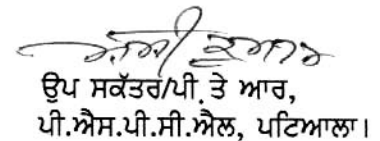 ਉਪ ਸਕੱਤਰ/ਪੀ ਤੇ ਆਰ,
ਪੀ.ਐਸ.ਪੀ.ਸੀ.ਐਲ, ਪਟਿਆਲਾ।